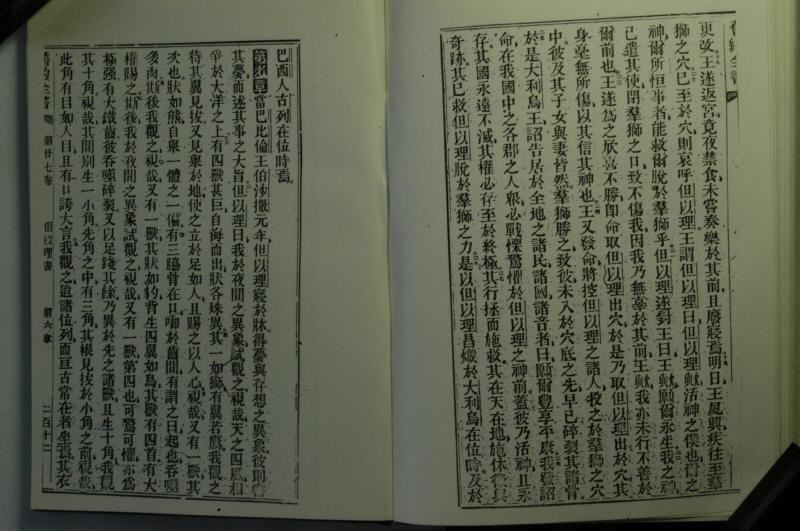 舊約全書
更改王遂返宮竟夜禁食未嘗奏樂於其前且廢寢焉明日王夙興疾往至羣
獅之穴巳至於穴則哀呼但以理王謂但以理曰但以理歟活神之僕也爾之
神爾所恒事者能救爾脫於羣獅乎但以理遂對王曰王歟願爾永生我之神
已遣其使閉羣獅之口致不傷我因我乃無辜於其前王歟我亦未行不善於
爾前也王遂爲之欣喜不勝卽命取但以理出穴於是乃取但以理出於穴其
身毫無所傷以其信其神也王又發命將控但以理之諸人投之於羣獅之穴
中彼及其子女與妻皆然羣獅勝之致彼未入於穴底之先早已碎裂其諸骨
於是大利烏王詔告居於全地之諸民諸國諸音者曰願爾豐享平康我發詔
命在我國中之各郡之人衆必戰慄驚懼於但以理之神前蓋彼乃活神且永
存其國永遠不滅其權必存至於終極其行拯而施救其在天在地施休徵與
奇跡其已救但以理脫於羣獅之力是以但以理昌熾於大利烏在位時及於
巴西人古列在位時焉
第七章當巴比倫王伯沙撒元年但以理寢於牀得夢與存想之異象彼則書
其夢而述其事之大旨但以理曰我於夜間之異象試觀之視哉天之四風相
爭於大洋之上有四獸甚巨自海而出狀各殊異其一如獅有翼若鷹我觀之
待其翼見拔又見舉於地使之立於足如人且賜之以人心視哉又有一獸其
次也狀如熊自舉一體之一偏有三脇骨在口啣於齒間有謂之曰起也吞噬
多肉斯後我觀之視哉又有一獸其狀如豹背生四翼如鳥其獸有四首有大
權賜之斯後我於夜間之異象試觀之視哉又有一獸第四也可驚可懼亦爲
極强有大鐵齒彼吞噬碎裂又以足踐其餘乃異於先之諸獸且生十角我觀
其十角視哉其間别生一小角先角之中有三角其根見拔於小角之前視哉
此角有目如人目且有口誇大言我觀之迨諸位列而亘古常在者坐焉其衣
舊約全書 第廿七卷 但以理書 第六章 二百十二